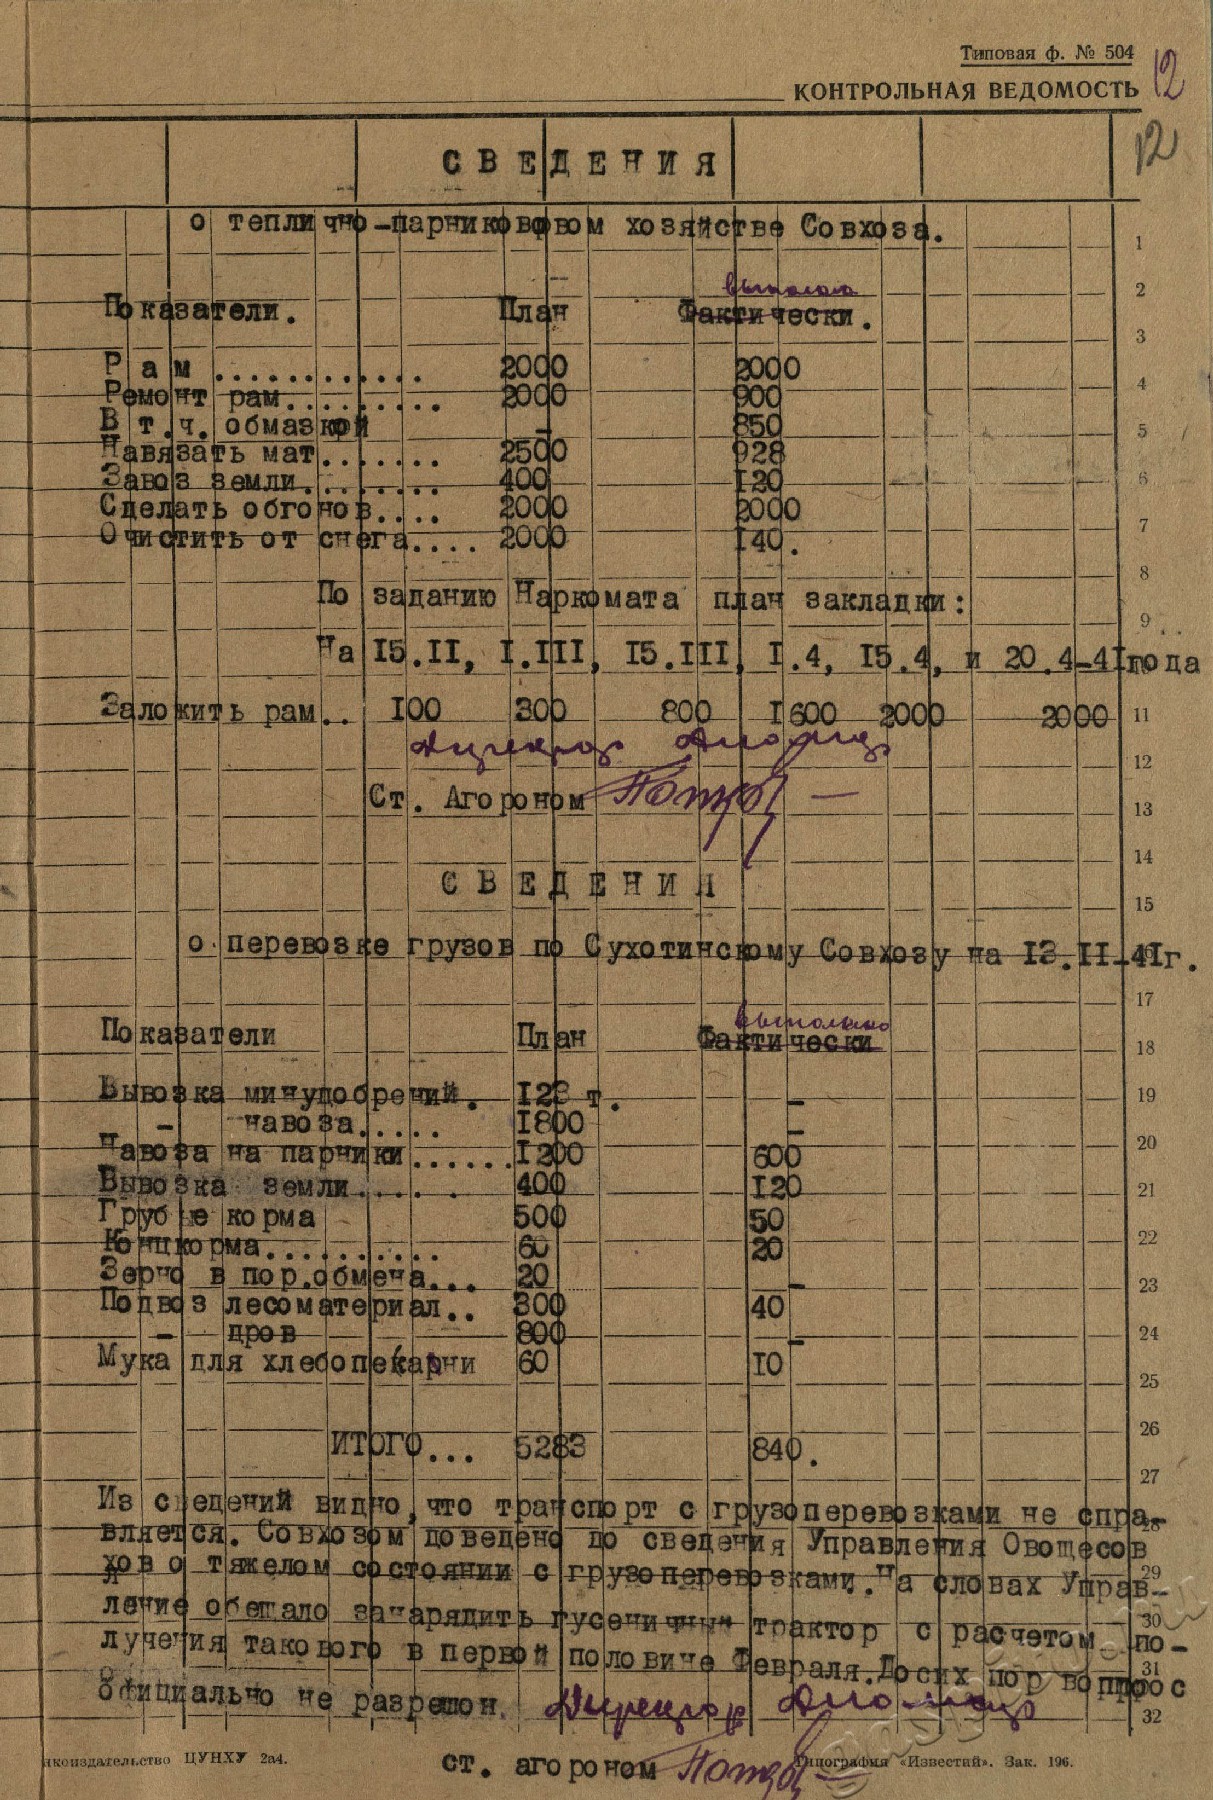 Типовая ф. № 504
КОНТРОЛЬНАЯ ВЕДОМОСТЬ
12
12
СВЕДЕНИЯ
о теплично-парниковом хозяйстве Совхоза.
выполнено
Показатели. План Фактически.
Рам ............ 2000 2000
Ремонт рам......... 2000 900
В т.ч. обмазкой - 850
Навязать мат....... 2500 928
Завоз земли........ 400 120
Сделать обгонов.... 2000 2000
Очистить от снега.... 2000 140.
По заданию Наркомата план закладки:
На 15.II, I.III, 15.III, I.4, 15.4, и 20.4-41года
Заложить рам.. 100 300 800 1600 2000 2000
Директор
Ст. Агороном
СВЕДЕНИЯ
о перевозке грузов по Сухотинскому Совхозу на 13.II-41г.
выполнено
Показатели План Фактически
Вывозка минудобрений. 123 т. -
- навоза..... 1800 -
Навоза на парники......1200 600
Вывозка земли..... 400 120
Грубые корма 500 50
Концкорма.......... 60 20
Зерно в пор.обмена... 20 -
Подвоз лесоматериал.. 300 40
- дров 800 -
Мука для хлебопекарни 60 10
ИТОГО... 5283 840.
Из сведений видно, что транспорт с грузоперевозками не спра-
вляется. Совхозом доведено до сведения Управления Овощесов
хов о тяжелом состоянии с грузоперевозками. На словах Управ-
ление обещало занарядить гусеничный трактор с расчетом по-
лучения такового в первой половине Февраля. До сих пор вопрос
официально не разрешон. Директор
ст. агороном
1
2
3
4
5
6
7
8
9
11
12
13
14
15
17
18
19
20
21
22
23
24
25
26
27
28
29
30
31
32
ЦУНХУ 2а4. Типография «Известий». Зак. 196.